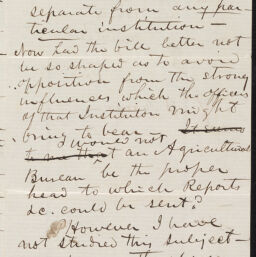 separate from any par
ticular institution —
Now had the bill better not
be so shaped as to avoid
opposition from the strong
influences which the officers
of that Institution might
bring to bear — It seems
to me that Would not an Agricultural
Bureau be the proper
head to which Reports
&c. could be sent?
However I have
not studied this subject —